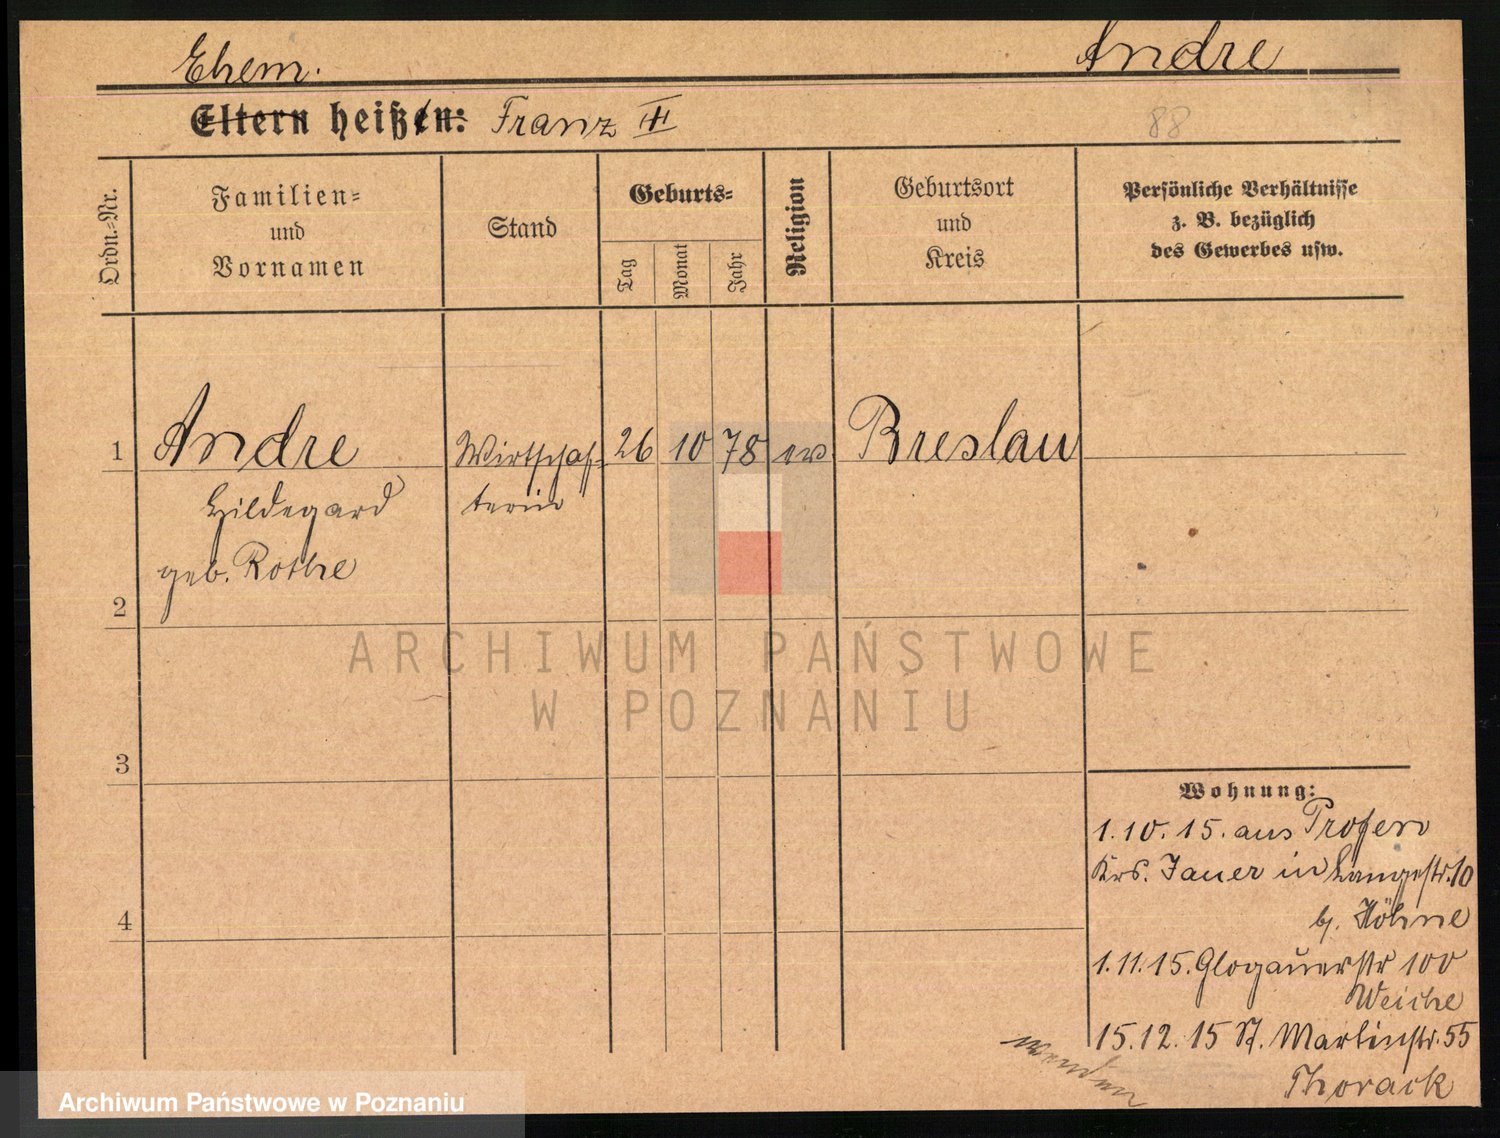 Ehem.
Andre
Eltern heißen: Franz III
88
Ordn.-Nr.
Familien-
und
Vornamen
Stand
Geburts-
Tag
Monat
Jahr
Religion
Geburtsort
und
Kreis
Persönliche Verhältnisse
z. B. bezüglich
des Gewerbes usw.
1 Andre Wirtschaf- 26 10 78 ev Breslau
Hildegard terin
geb. Rothe
2
ARCHIWUM PAŃSTWOWE
W POZNANIU
3
Wohnung:
1.10.15. aus Profen
Krs. Jauer in Langestr. 10
b. Höhne
4
1.11.15. Glogauerstr 100
Weiche
15.12.15 St. Martinstr. 55
wenden
Thorack
Archiwum Państwowe w Poznaniu